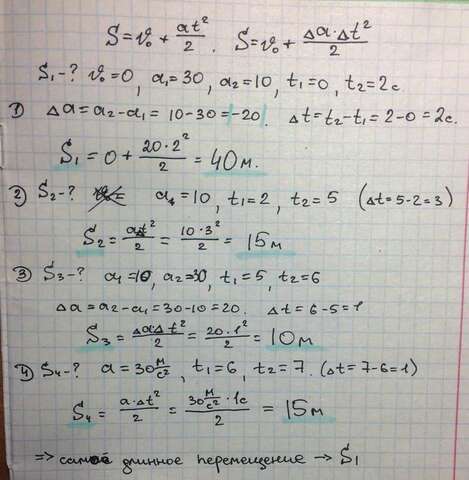 S = v₀ + at²/2. S = v₀ + Δa·Δt²/2
S₁-? v₀=0, a₁=30, a₂=10, t₁=0, t₂=2с.
1) Δa = a₂-a₁ = 10-30 = |-20|. Δt = t₂-t₁ = 2-0 = 2с.
S₁ = 0 + 20·2²/2 = 40м.
2) S₂-? a₁=10, t₁=2, t₂=5 (Δt=5-2=3)
S₂ = aΔt²/2 = 10·3²/2 = 15м
3) S₃-? a₁=10, a₂=30, t₁=5, t₂=6
Δa = a₂-a₁ = 30-10 = 20. Δt = 6-5 = 1
S₃ = Δa·Δt²/2 = 20·1²/2 = 10м
4) S₄-? a = 30 м/с², t₁=6, t₂=7. (Δt=7-6=1)
S₄ = a·Δt²/2 = 30 м/с²·1с/2 = 15м
=> самое длинное перемещение → S₁